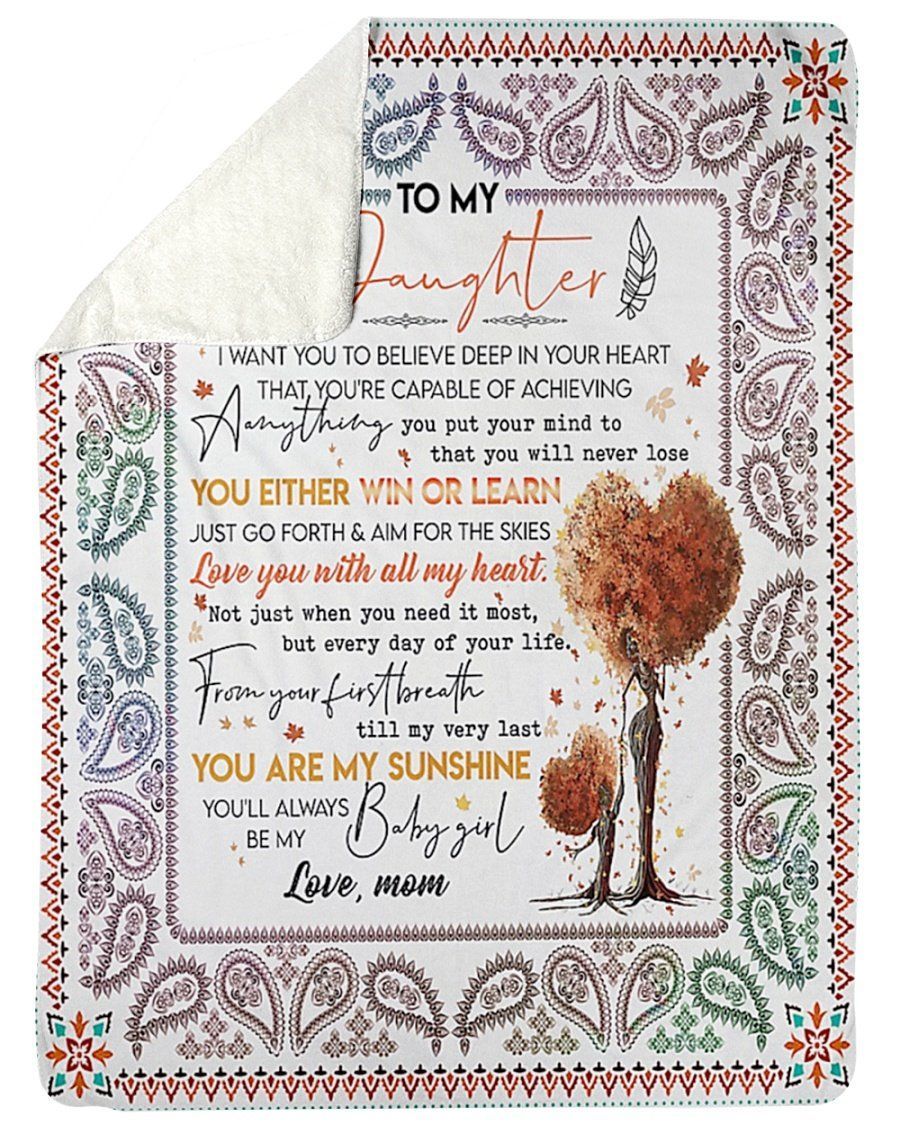 TO MY
Daughter
I WANT YOU TO BELIEVE DEEP IN YOUR HEART
THAT YOU'RE CAPABLE OF ACHIEVING
Aanything you put your mind to
that you will never lose
YOU EITHER WIN OR LEARN
JUST GO FORTH & AIM FOR THE SKIES
Love you with all my heart.
Not just when you need it most,
but every day of your life.
From your first breath
till my very last
YOU ARE MY SUNSHINE
YOU'LL ALWAYS
BE MY Baby girl
Love, mom